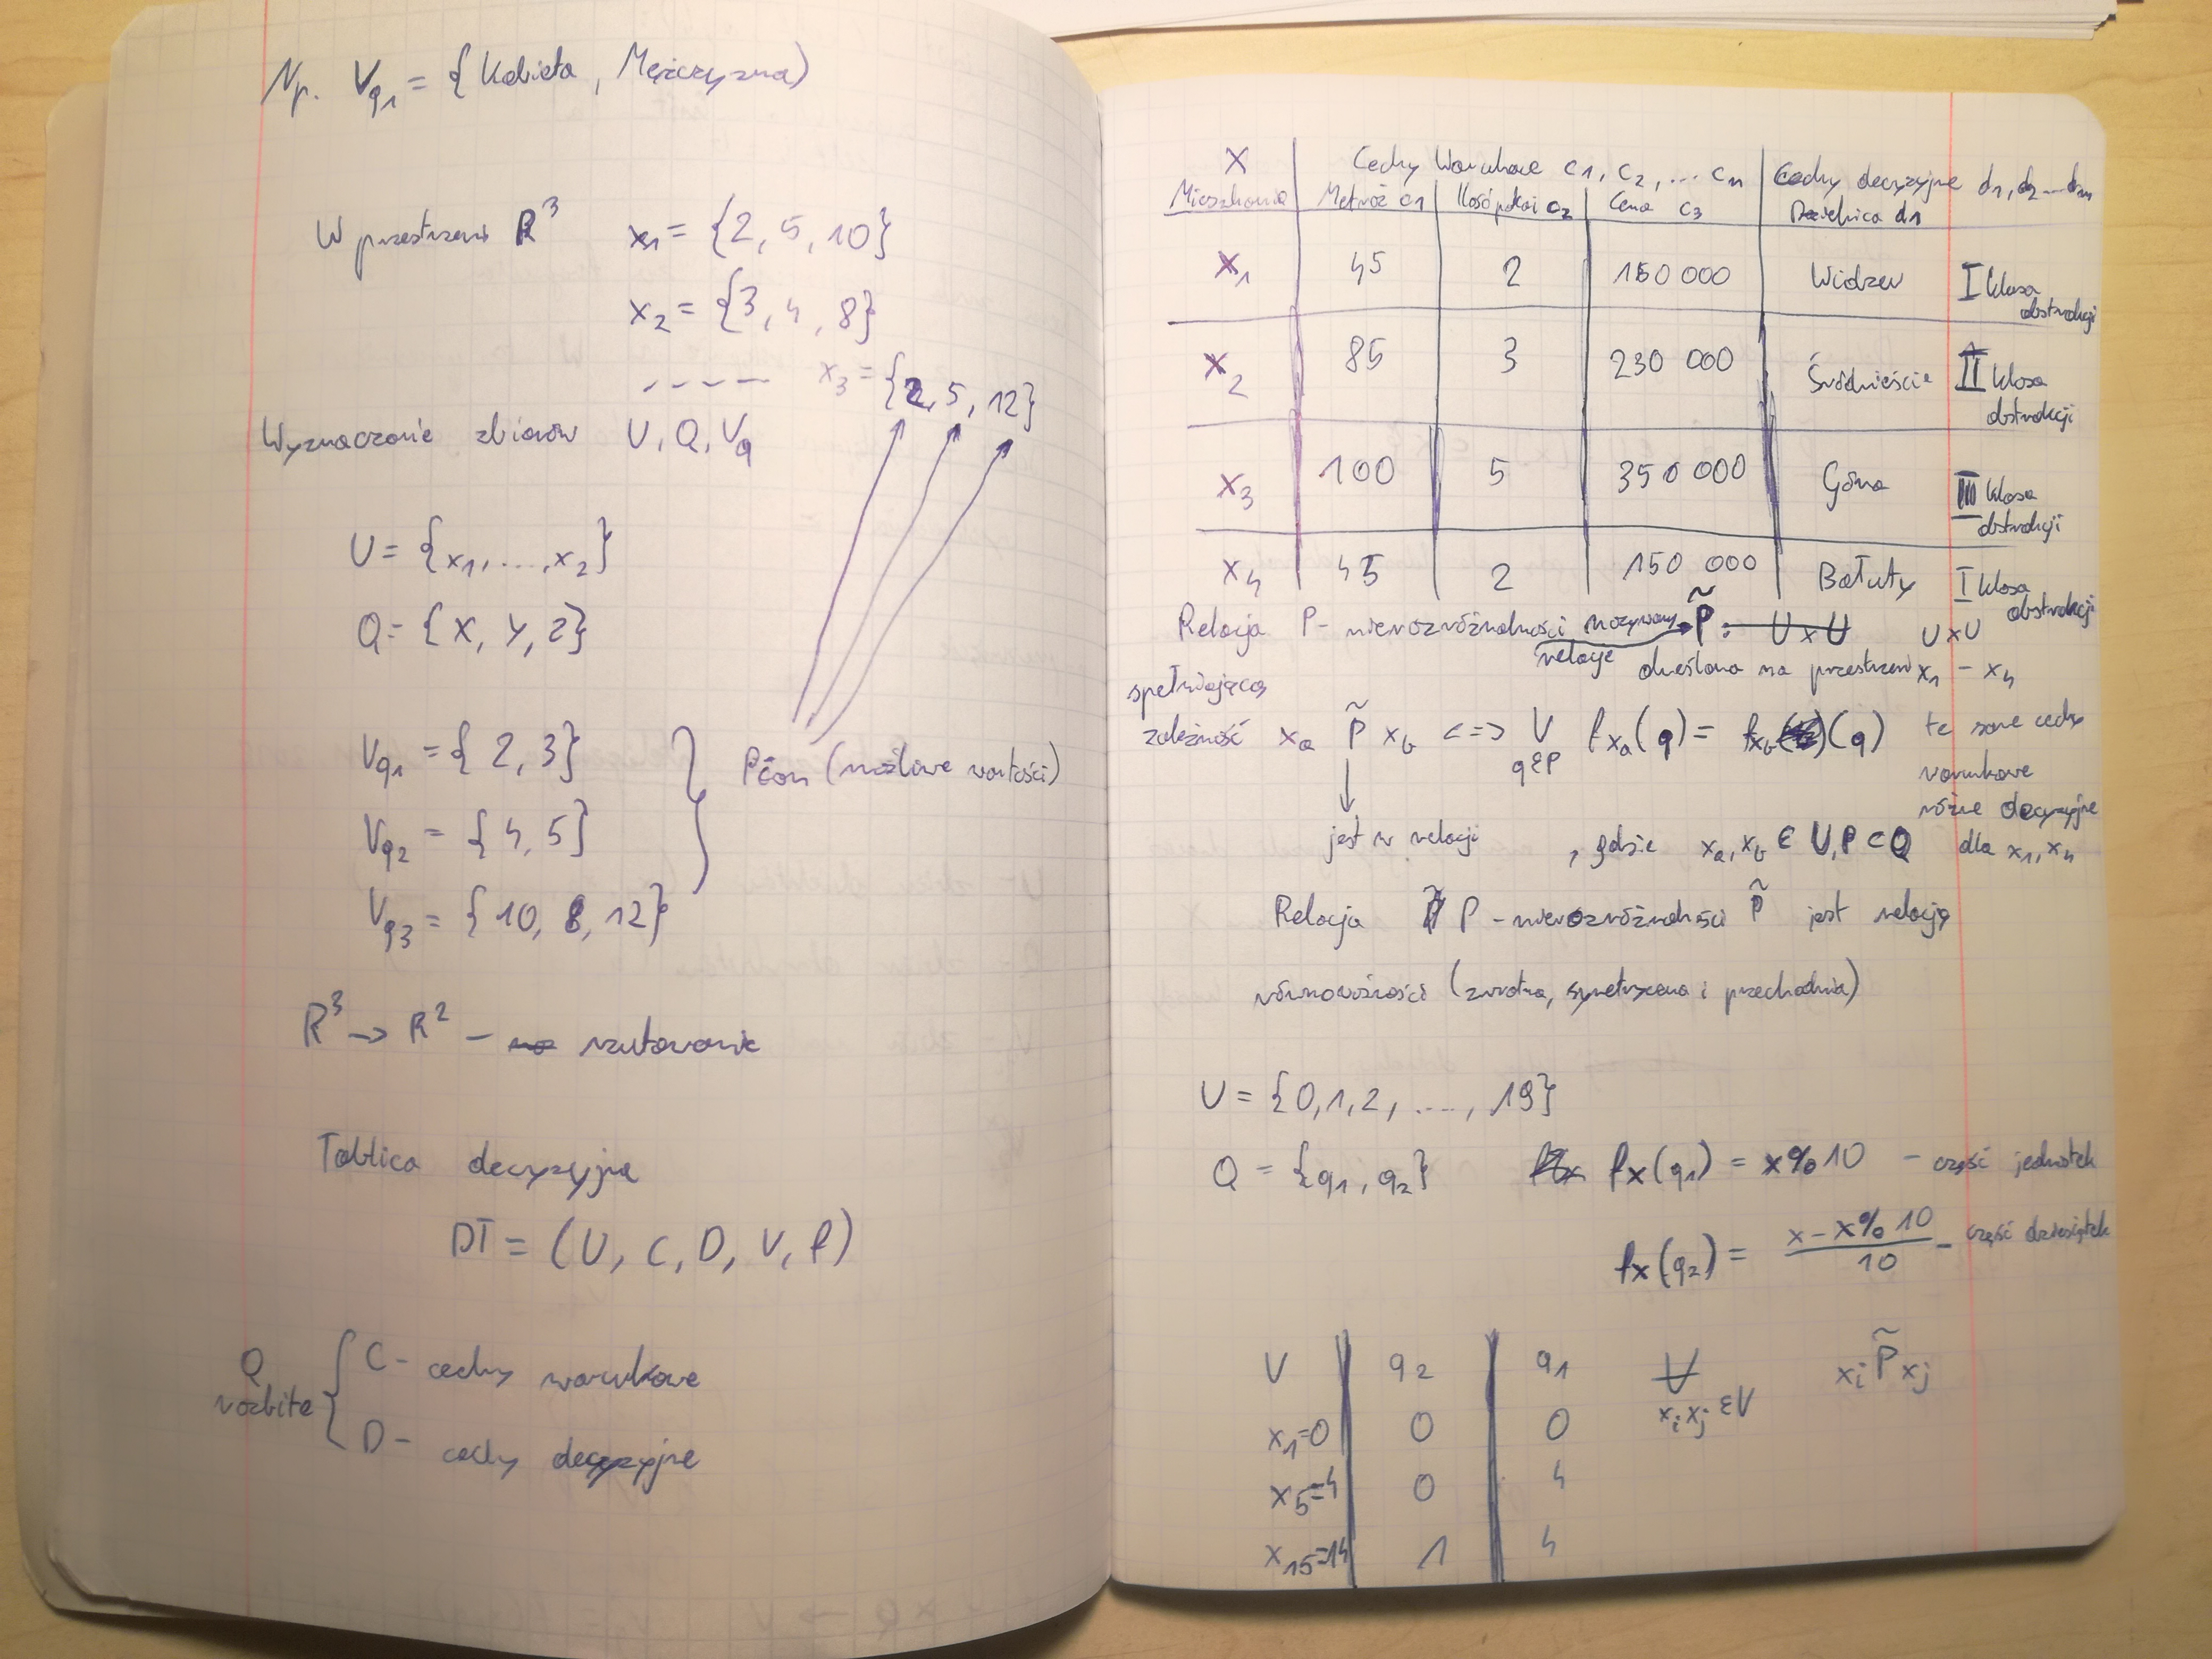 Np. Vq1 = { Kobieta, Mężczyzna)
W przestrzeni R³ x1 = {2, 5, 10}
x2 = {3, 4, 8}
---- x3 = {2, 5, 12}
Wyznaczanie zbiorów U, Q, Vq
U = {x1, ..., x2}
Q = {X, Y, Z}
Vq1 = { 2, 3}
Vq2 = { 4, 5}
Vq3 = { 10, 8, 12}
(możliwe wartości)
R³ -> R² - rzutowanie
Tablica decyzyjna
DT = (U, C, D, V, f)
Q rozbite
C - cechy warunkowe
D - cechy decyzyjne
X Cechy Warunkowe c1, c2, ... cn Cechy decyzyjne d1, d2...dm
Mieszkania Metraż c1 Ilość pokoi c2 Cena c3 Dzielnica d1
x1 45 2 150 000 Widzew I klasa abstrakcji
x2 85 3 230 000 Śródmieście II klasa abstrakcji
x3 100 5 350 000 Górna III klasa abstrakcji
x4 45 2 150 000 Bałuty I klasa abstrakcji
Relacja P - nierozróżnialności nazywamy P̃ : U x U U x U
relację określona na przestrzeni x1 - x4
spełniającą
zależność xa P̃ xb <=> ∀ q∈P fxa(q) = fxb(q) te same cechy
warunkowe
różne decyzyjne
jest w relacji , gdzie xa, xb ∈ U, P ⊂ Q dla x1, x4
Relacja P - nierozróżnialności P̃ jest relacją
równoważności (zwrotna, symetryczna i przechodnia)
U = {0,1,2, ...., 19}
Q = {q1, q2} fx(q1) = x%10 - część jednostek
fx(q2) = (x - x%10)/10 - część dziesiątek
U q2 q1 ∀ xi xj ∈U xi P̃ xj
x1=0 0 0
x5=4 0 4
x15=14 1 4